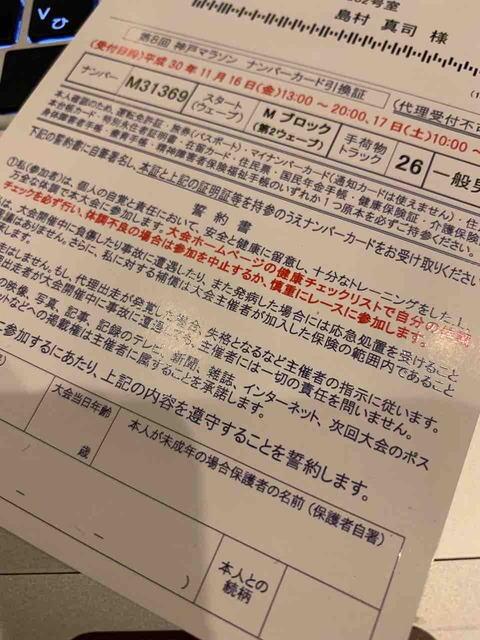 V
ひ
02号室
島村 真司 様
第8回 神戸マラソン ナンバーカード引換証
(受付日時)平成30年11月16日(金)13:00～20:00、17日(土)10:00～
(代理受付不可
ナンバー
M31369
スタート
(ウェーブ)
M ブロック
(第2ウェーブ)
手荷物
トラック
26
一般男
本人確認のため、運転免許証・旅券(パスポート)・マイナンバーカード(通知カードは使えません)・住
本台帳カード・特別永住者証明書・在留カード・住民票・国民年金手帳・健康保険証・介護保険
身体障害者手帳・療育手帳・精神障害者保険福祉手帳のいずれか1つ原本を必ずご持参ください。
下記の誓約書に自筆署名し、本証と上記の証明証等を持参のうえナンバーカードをお受け取りください
誓 約 書
①私(参加者)は、個人の自覚と責任において、安全と健康に留意し、十分なトレーニングをした上、
万全な体調で本大会に参加します。大会ホームページの健康チェックリストで自分の
チェックを必ず行い、体調不良の場合は参加を中止するか、慎重にレースに参加します。
は、大会開催中に負傷したり事故に遭遇したり、また発病した場合には応急処置を受けること
議はありません。さらに、私に対する補償は大会主催者が加入した保険の範囲内であること
走はしません。もし、代理出走が発覚した場合、失格となるなど主催者の指示に従います。
出走者が大会開催中に事故に遭遇しても、主催者には一切の責任を問いません。
の映像、写真、記事、記録のテレビ、新聞、雑誌、インターネット、次回大会のポス
ットなどへの掲載権は主催者に属することを承諾します。
に参加するにあたり、上記の内容を遵守することを誓約します。
大会当日年齢
歳
本人が未成年の場合保護者の名前(保護者自署)
本人との
続柄